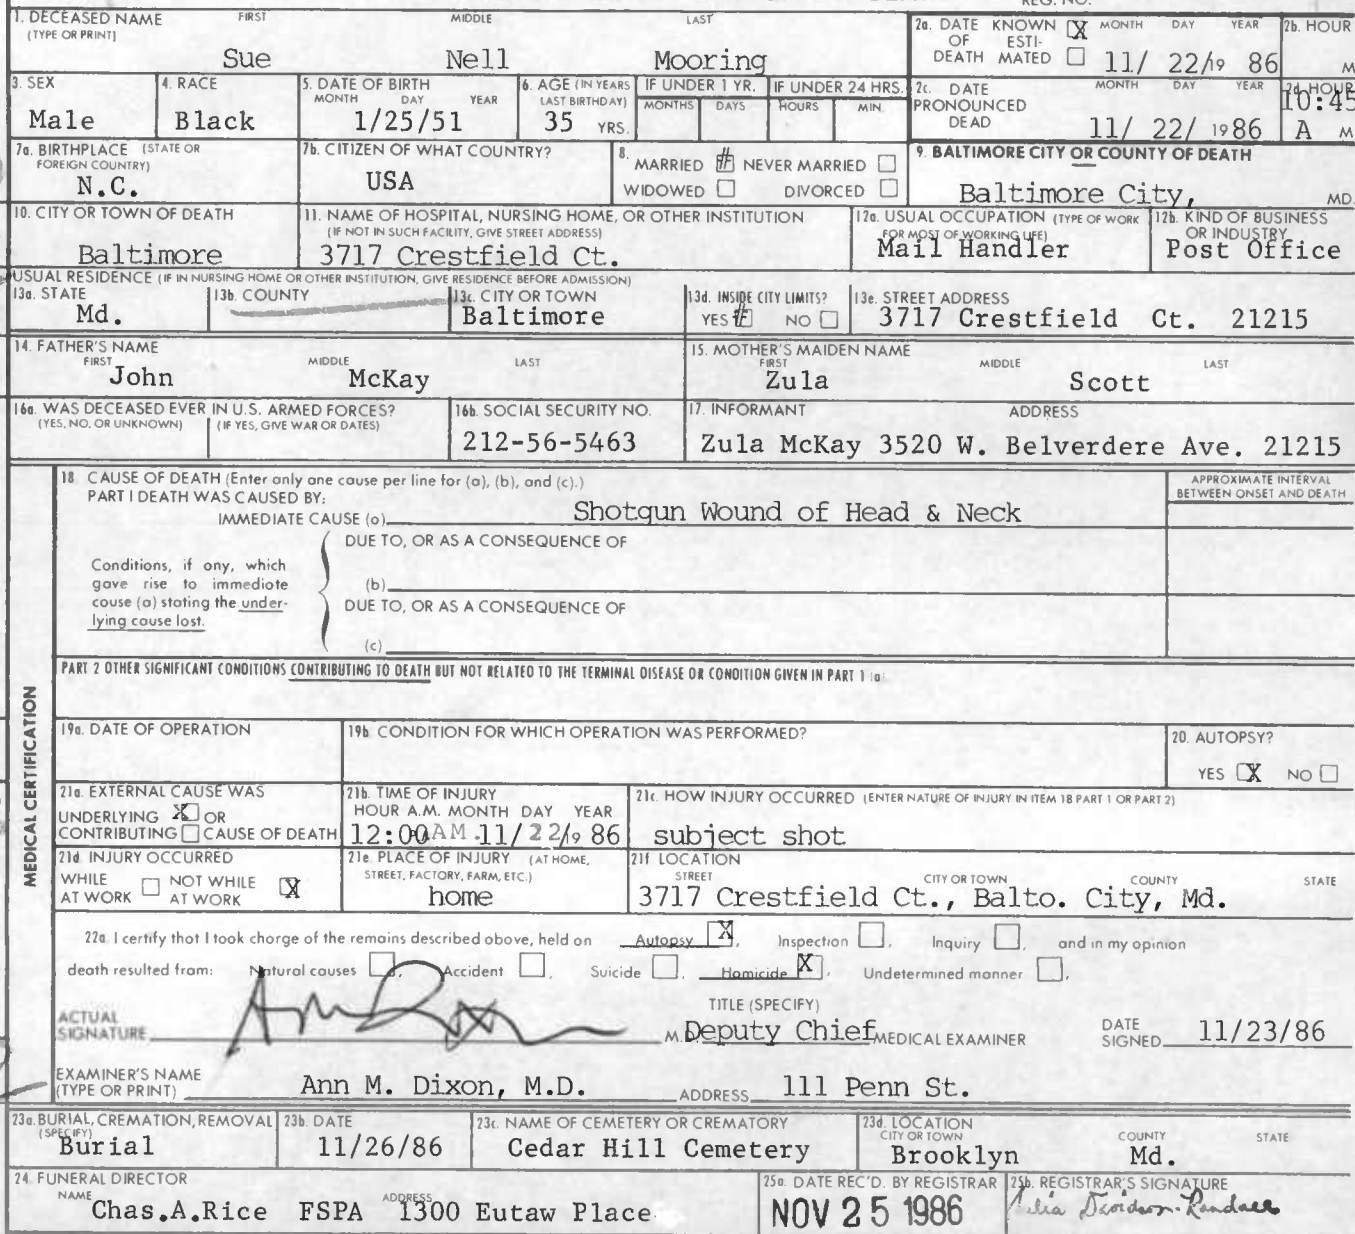 REG. NO.
1. DECEASED NAME FIRST MIDDLE LAST
(TYPE OR PRINT)
Sue Nell Mooring
2a. DATE KNOWN X MONTH DAY YEAR
OF ESTI-
DEATH MATED 11/ 22/19 86
2b. HOUR
M
3. SEX
Male
4. RACE
Black
5. DATE OF BIRTH
MONTH DAY YEAR
1/25/51
6. AGE (IN YEARS
LAST BIRTHDAY)
35 YRS.
IF UNDER 1 YR.
MONTHS DAYS
IF UNDER 24 HRS.
HOURS MIN.
2c. DATE MONTH DAY YEAR
PRONOUNCED
DEAD 11/ 22/ 1986
2d. HOUR
10:45
A M
7a. BIRTHPLACE (STATE OR
FOREIGN COUNTRY)
N.C.
7b. CITIZEN OF WHAT COUNTRY?
USA
8.
MARRIED # NEVER MARRIED
WIDOWED DIVORCED
9. BALTIMORE CITY OR COUNTY OF DEATH
Baltimore City, MD.
10. CITY OR TOWN OF DEATH
Baltimore
11. NAME OF HOSPITAL, NURSING HOME, OR OTHER INSTITUTION
(IF NOT IN SUCH FACILITY, GIVE STREET ADDRESS)
3717 Crestfield Ct.
12a. USUAL OCCUPATION (TYPE OF WORK
FOR MOST OF WORKING LIFE)
Mail Handler
12b. KIND OF BUSINESS
OR INDUSTRY
Post Office
USUAL RESIDENCE (IF IN NURSING HOME OR OTHER INSTITUTION, GIVE RESIDENCE BEFORE ADMISSION)
13a. STATE
Md.
13b. COUNTY
13c. CITY OR TOWN
Baltimore
13d. INSIDE CITY LIMITS?
YES # NO
13e. STREET ADDRESS
3717 Crestfield Ct. 21215
14. FATHER'S NAME
FIRST MIDDLE LAST
John McKay
15. MOTHER'S MAIDEN NAME
FIRST MIDDLE LAST
Zula Scott
16a. WAS DECEASED EVER IN U.S. ARMED FORCES?
(YES, NO, OR UNKNOWN) (IF YES, GIVE WAR OR DATES)
16b. SOCIAL SECURITY NO.
212-56-5463
17. INFORMANT ADDRESS
Zula McKay 3520 W. Belverdere Ave. 21215
MEDICAL CERTIFICATION
18 CAUSE OF DEATH (Enter only one cause per line for (a), (b), and (c).)
PART I DEATH WAS CAUSED BY:
IMMEDIATE CAUSE (a) Shotgun Wound of Head & Neck
APPROXIMATE INTERVAL
BETWEEN ONSET AND DEATH
DUE TO, OR AS A CONSEQUENCE OF
Conditions, if any, which
gave rise to immediate
cause (a) stating the under-
lying cause last.
(b)
DUE TO, OR AS A CONSEQUENCE OF
(c)
PART 2 OTHER SIGNIFICANT CONDITIONS CONTRIBUTING TO DEATH BUT NOT RELATED TO THE TERMINAL DISEASE OR CONDITION GIVEN IN PART 1 (a)
19a. DATE OF OPERATION
19b. CONDITION FOR WHICH OPERATION WAS PERFORMED?
20. AUTOPSY?
YES X NO
21a. EXTERNAL CAUSE WAS
UNDERLYING X OR
CONTRIBUTING CAUSE OF DEATH
21b. TIME OF INJURY
HOUR A.M. MONTH DAY YEAR
12:00AM .11/ 22/19 86
21c. HOW INJURY OCCURRED (ENTER NATURE OF INJURY IN ITEM 18 PART 1 OR PART 2)
subject shot
21d. INJURY OCCURRED
WHILE NOT WHILE X
AT WORK AT WORK
21e. PLACE OF INJURY (AT HOME,
STREET, FACTORY, FARM, ETC.)
home
21f LOCATION
STREET CITY OR TOWN COUNTY STATE
3717 Crestfield Ct., Balto. City, Md.
22a. I certify that I took charge of the remains described above, held on Autopsy X, Inspection , Inquiry , and in my opinion
death resulted from: Natural causes , Accident , Suicide , Homicide X, Undetermined manner ,
ACTUAL
SIGNATURE Ann Dixon
TITLE (SPECIFY)
M.D. Deputy Chief MEDICAL EXAMINER
DATE
SIGNED 11/23/86
EXAMINER'S NAME
(TYPE OR PRINT) Ann M. Dixon, M.D. ADDRESS 111 Penn St.
23a. BURIAL, CREMATION, REMOVAL
(SPECIFY)
Burial
23b. DATE
11/26/86
23c. NAME OF CEMETERY OR CREMATORY
Cedar Hill Cemetery
23d. LOCATION
CITY OR TOWN COUNTY STATE
Brooklyn Md.
24. FUNERAL DIRECTOR
NAME ADDRESS
Chas.A.Rice FSPA 1300 Eutaw Place
25a. DATE REC'D. BY REGISTRAR
NOV 25 1986
25b. REGISTRAR'S SIGNATURE
Davidson-Randall